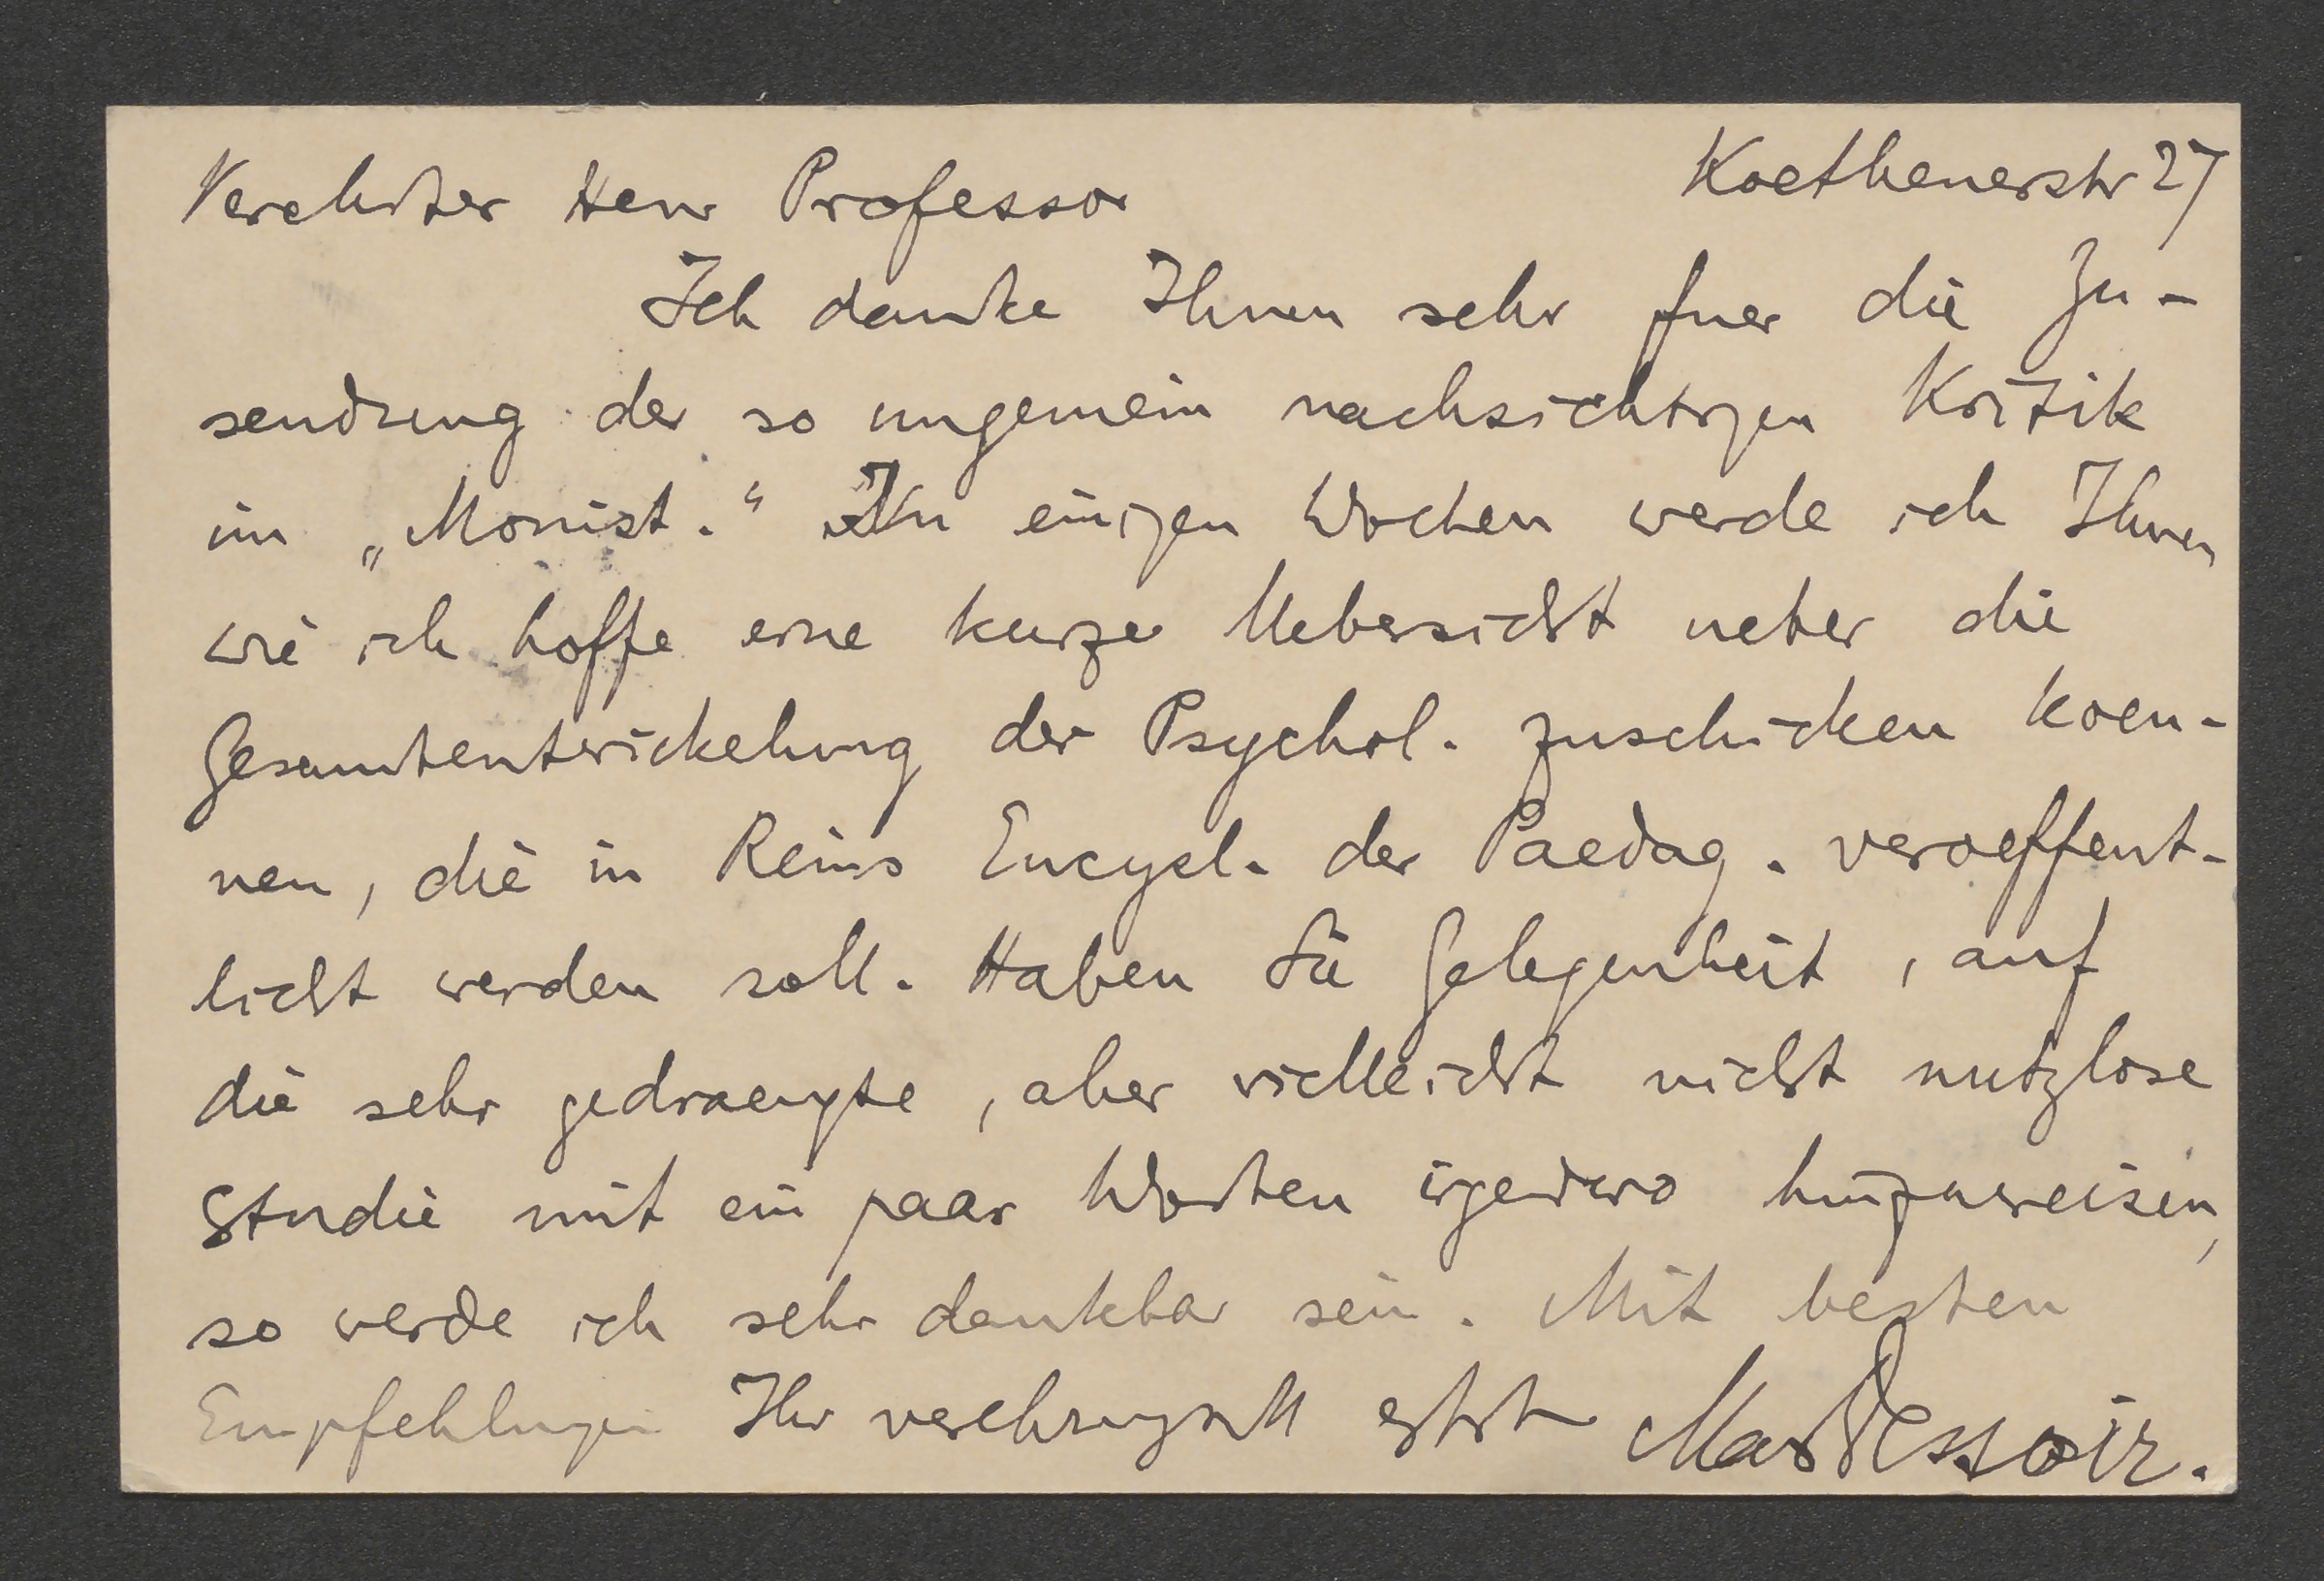 Verehrter Herr Professor Koethenerstr 27
Ich danke Ihnen sehr fuer die Zu-
sendung der so ungemein nachsichtigen Kritik
im „Monist." In einigen Wochen werde ich Ihnen
wie ich hoffe eine kurze Uebersicht ueber die
Gesamtentwickelung der Psychol. zuschicken koen-
nen, die in Reins Encycl. der Paedag. veroeffent-
licht werden soll. Haben Sie Gelegenheit, auf
die sehr gedraengte, aber vielleicht nicht nutzlose
Studie mit ein paar Worten irgendwo hinzuweisen,
so werde ich sehr dankbar sein. Mit besten
Empfehlungen Ihr verehrungsvoll Max Dessoir.